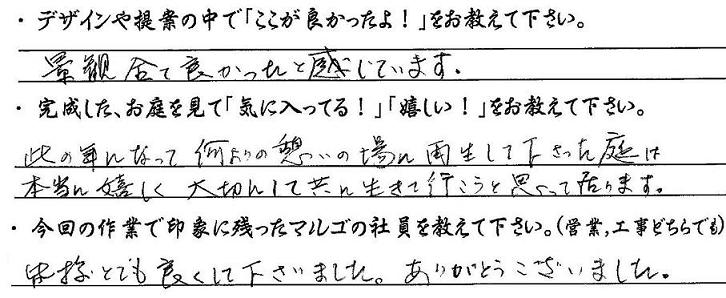 ・デザインや提案の中で「ここが良かったよ！」をお教えて下さい。
景観全て良かったと感じています。
・完成した、お庭を見て「気に入ってる！」「嬉しい！」をお教えて下さい。
此の年になって 何よりの憩いの場に再生して下さった庭は
本当に嬉しく 大切にして共に生きて行こうと思って居ります。
・今回の作業で印象に残ったマルゴの社員を教えて下さい。(営業,工事どちらでも)
とても良くして下さいました。ありがとうございました。